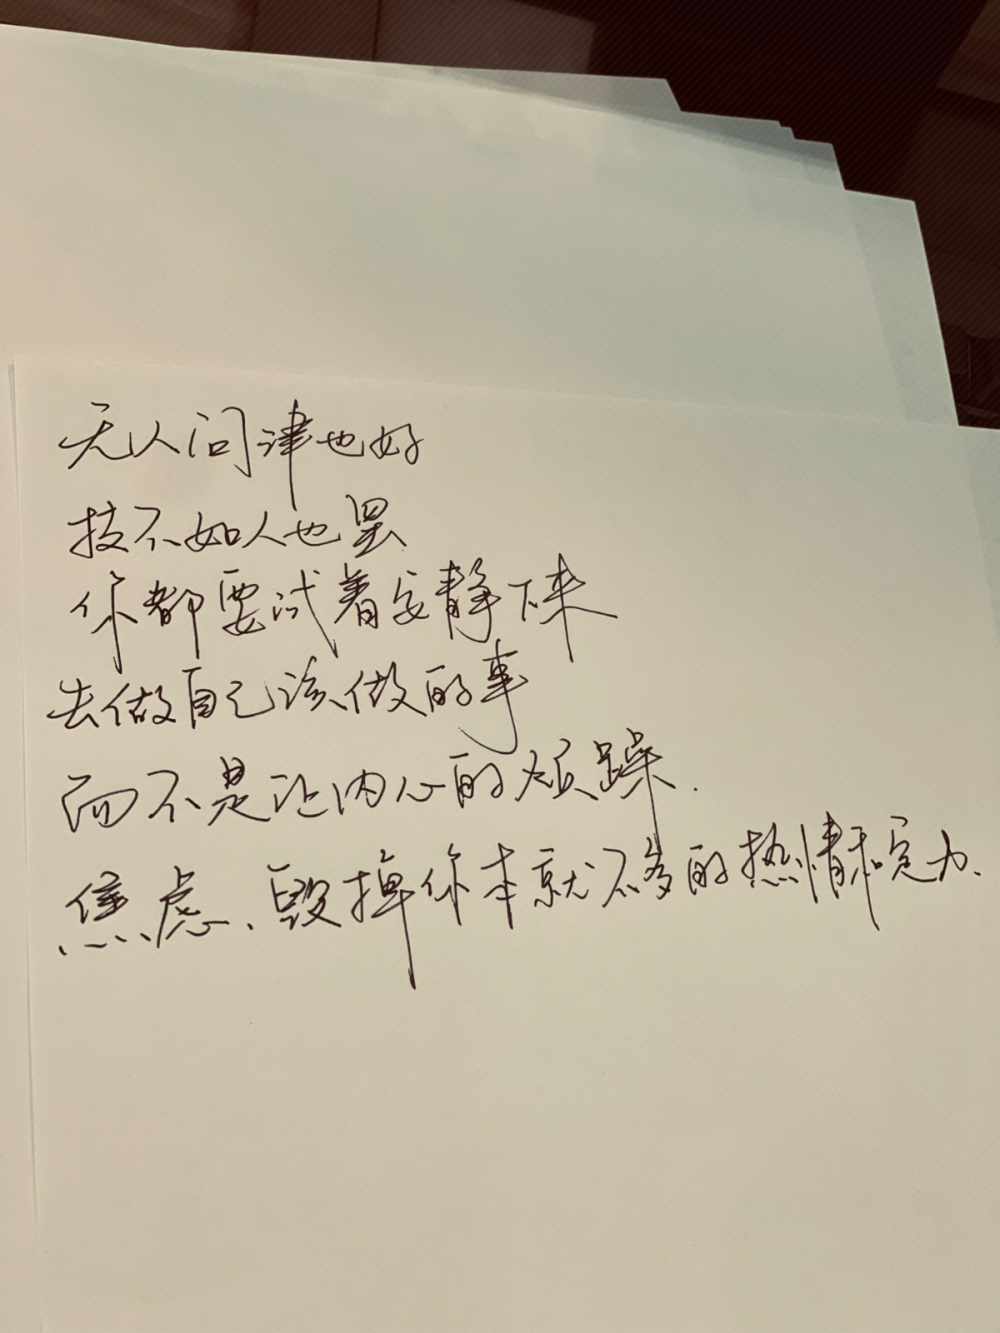 无人问津也好
技不如人也罢
你都要试着安静下来
去做自己该做的事
而不是让内心的烦躁.
焦虑、毁掉你本就不多的热情和定力.